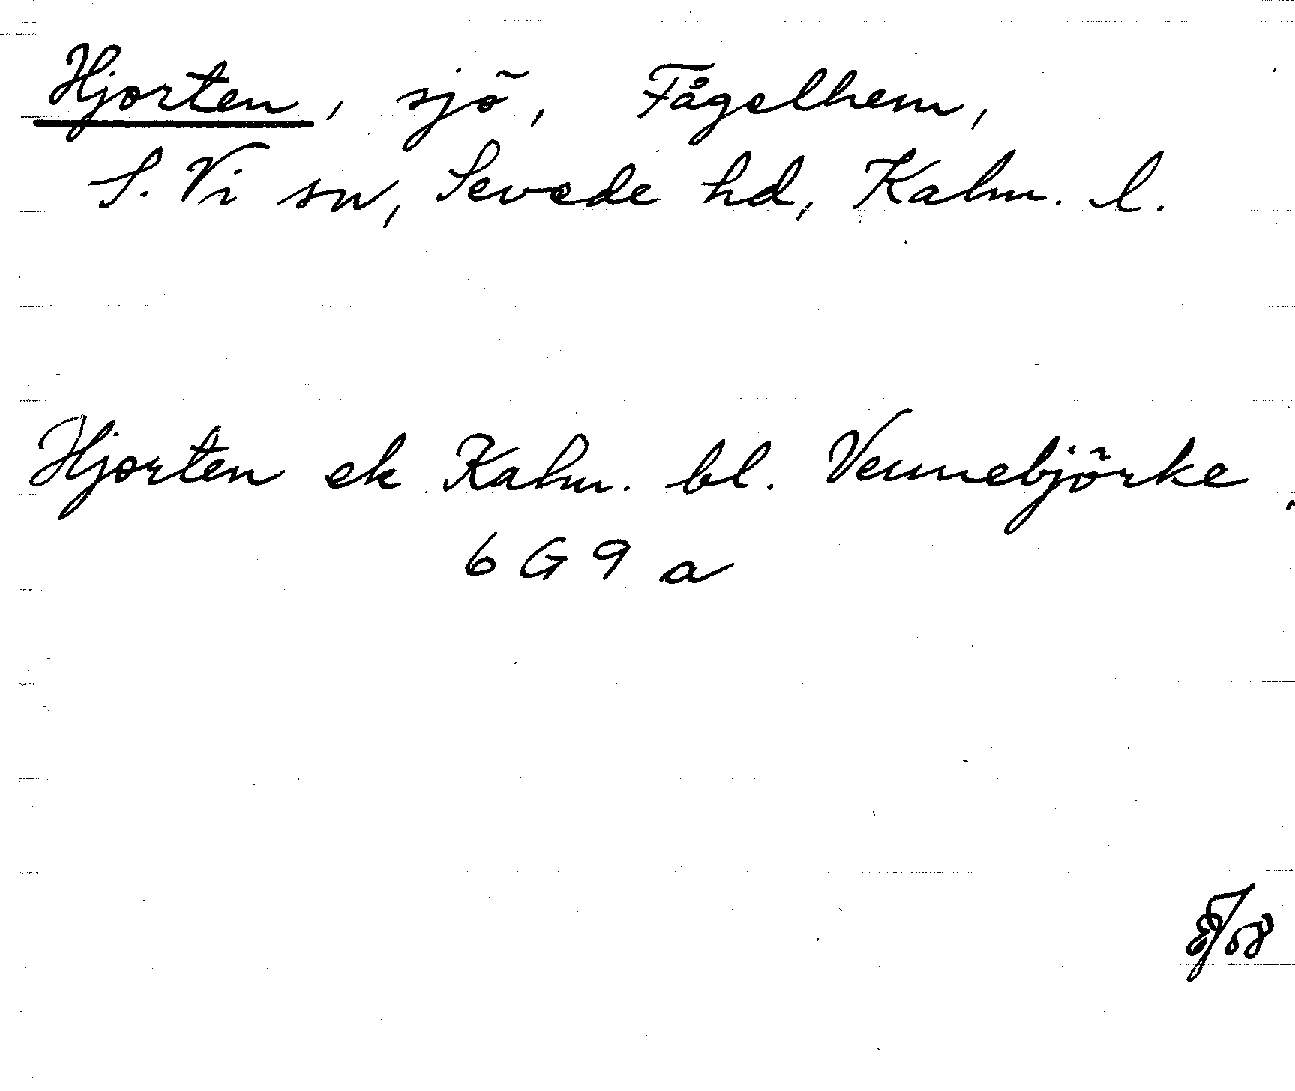 Hjorten, sjö, Fågelhem,
S. Vi sn, Sevede hd, Kalm. l.
Hjorten ek Kalm. bl. Vennebjörke
6 G 9 a